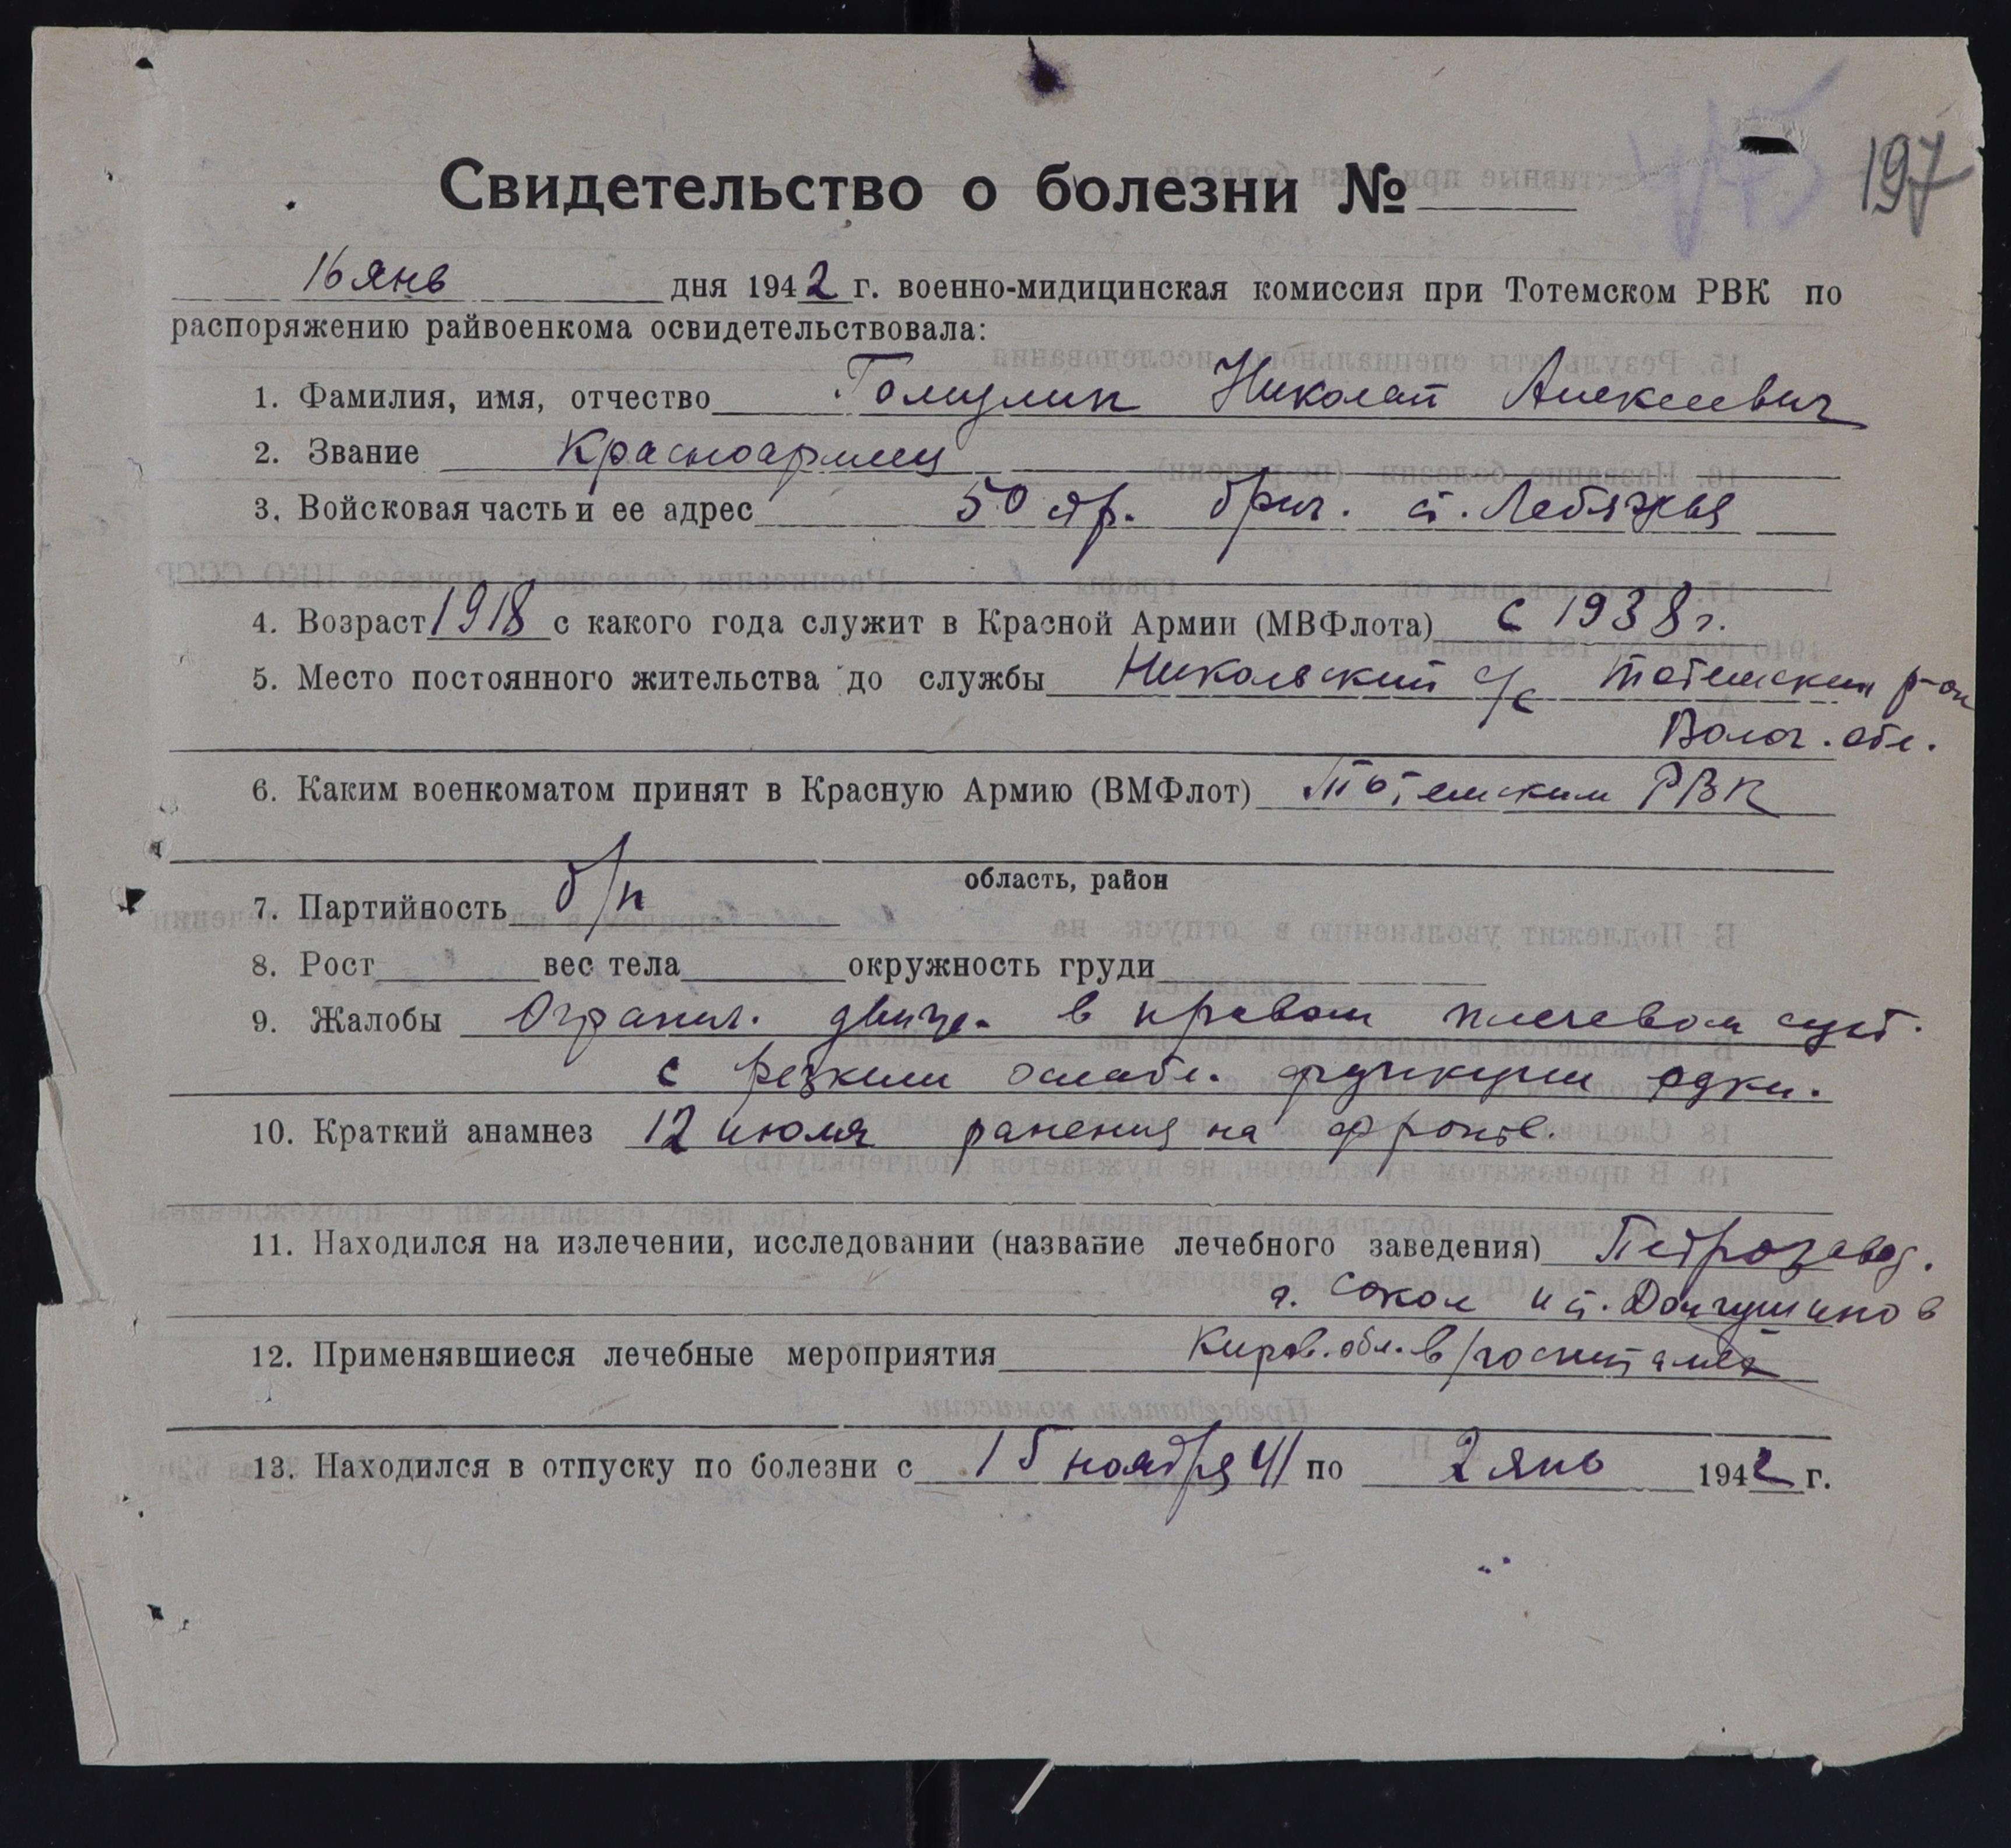 197
Свидетельство о болезни №
16 янв дня 1942 г. военно-мидицинская комиссия при Тотемском РВК по
распоряжению райвоенкома освидетельствовала:
1. Фамилия, имя, отчество Николай Алексеевич
2. Звание Красноармеец
3. Войсковая часть и ее адрес 50 бриг. ст. Лебяжья
4. Возраст 1918 с какого года служит в Красной Армии (МВФлота) с 1938 г.
5. Место постоянного жительства до службы Никольский с/с Тотемский р-он
Волог. обл.
6. Каким военкоматом принят в Красную Армию (ВМФлот) Тотемским РВК
область, район
7. Партийность б/п
8. Рост вес тела окружность груди
9. Жалобы Огранич. движ. в правом плечевом суст.
с резким ослабл. функции руки.
10. Краткий анамнез 12 июля ранения на фронте.
11. Находился на излечении, исследовании (название лечебного заведения) Петрозавод.
г. Сокол и ст. Долгушино в
12. Применявшиеся лечебные мероприятия Киров. обл. в/госпиталях
13. Находился в отпуску по болезни с 15 ноября 41 по 2 янв 1942 г.